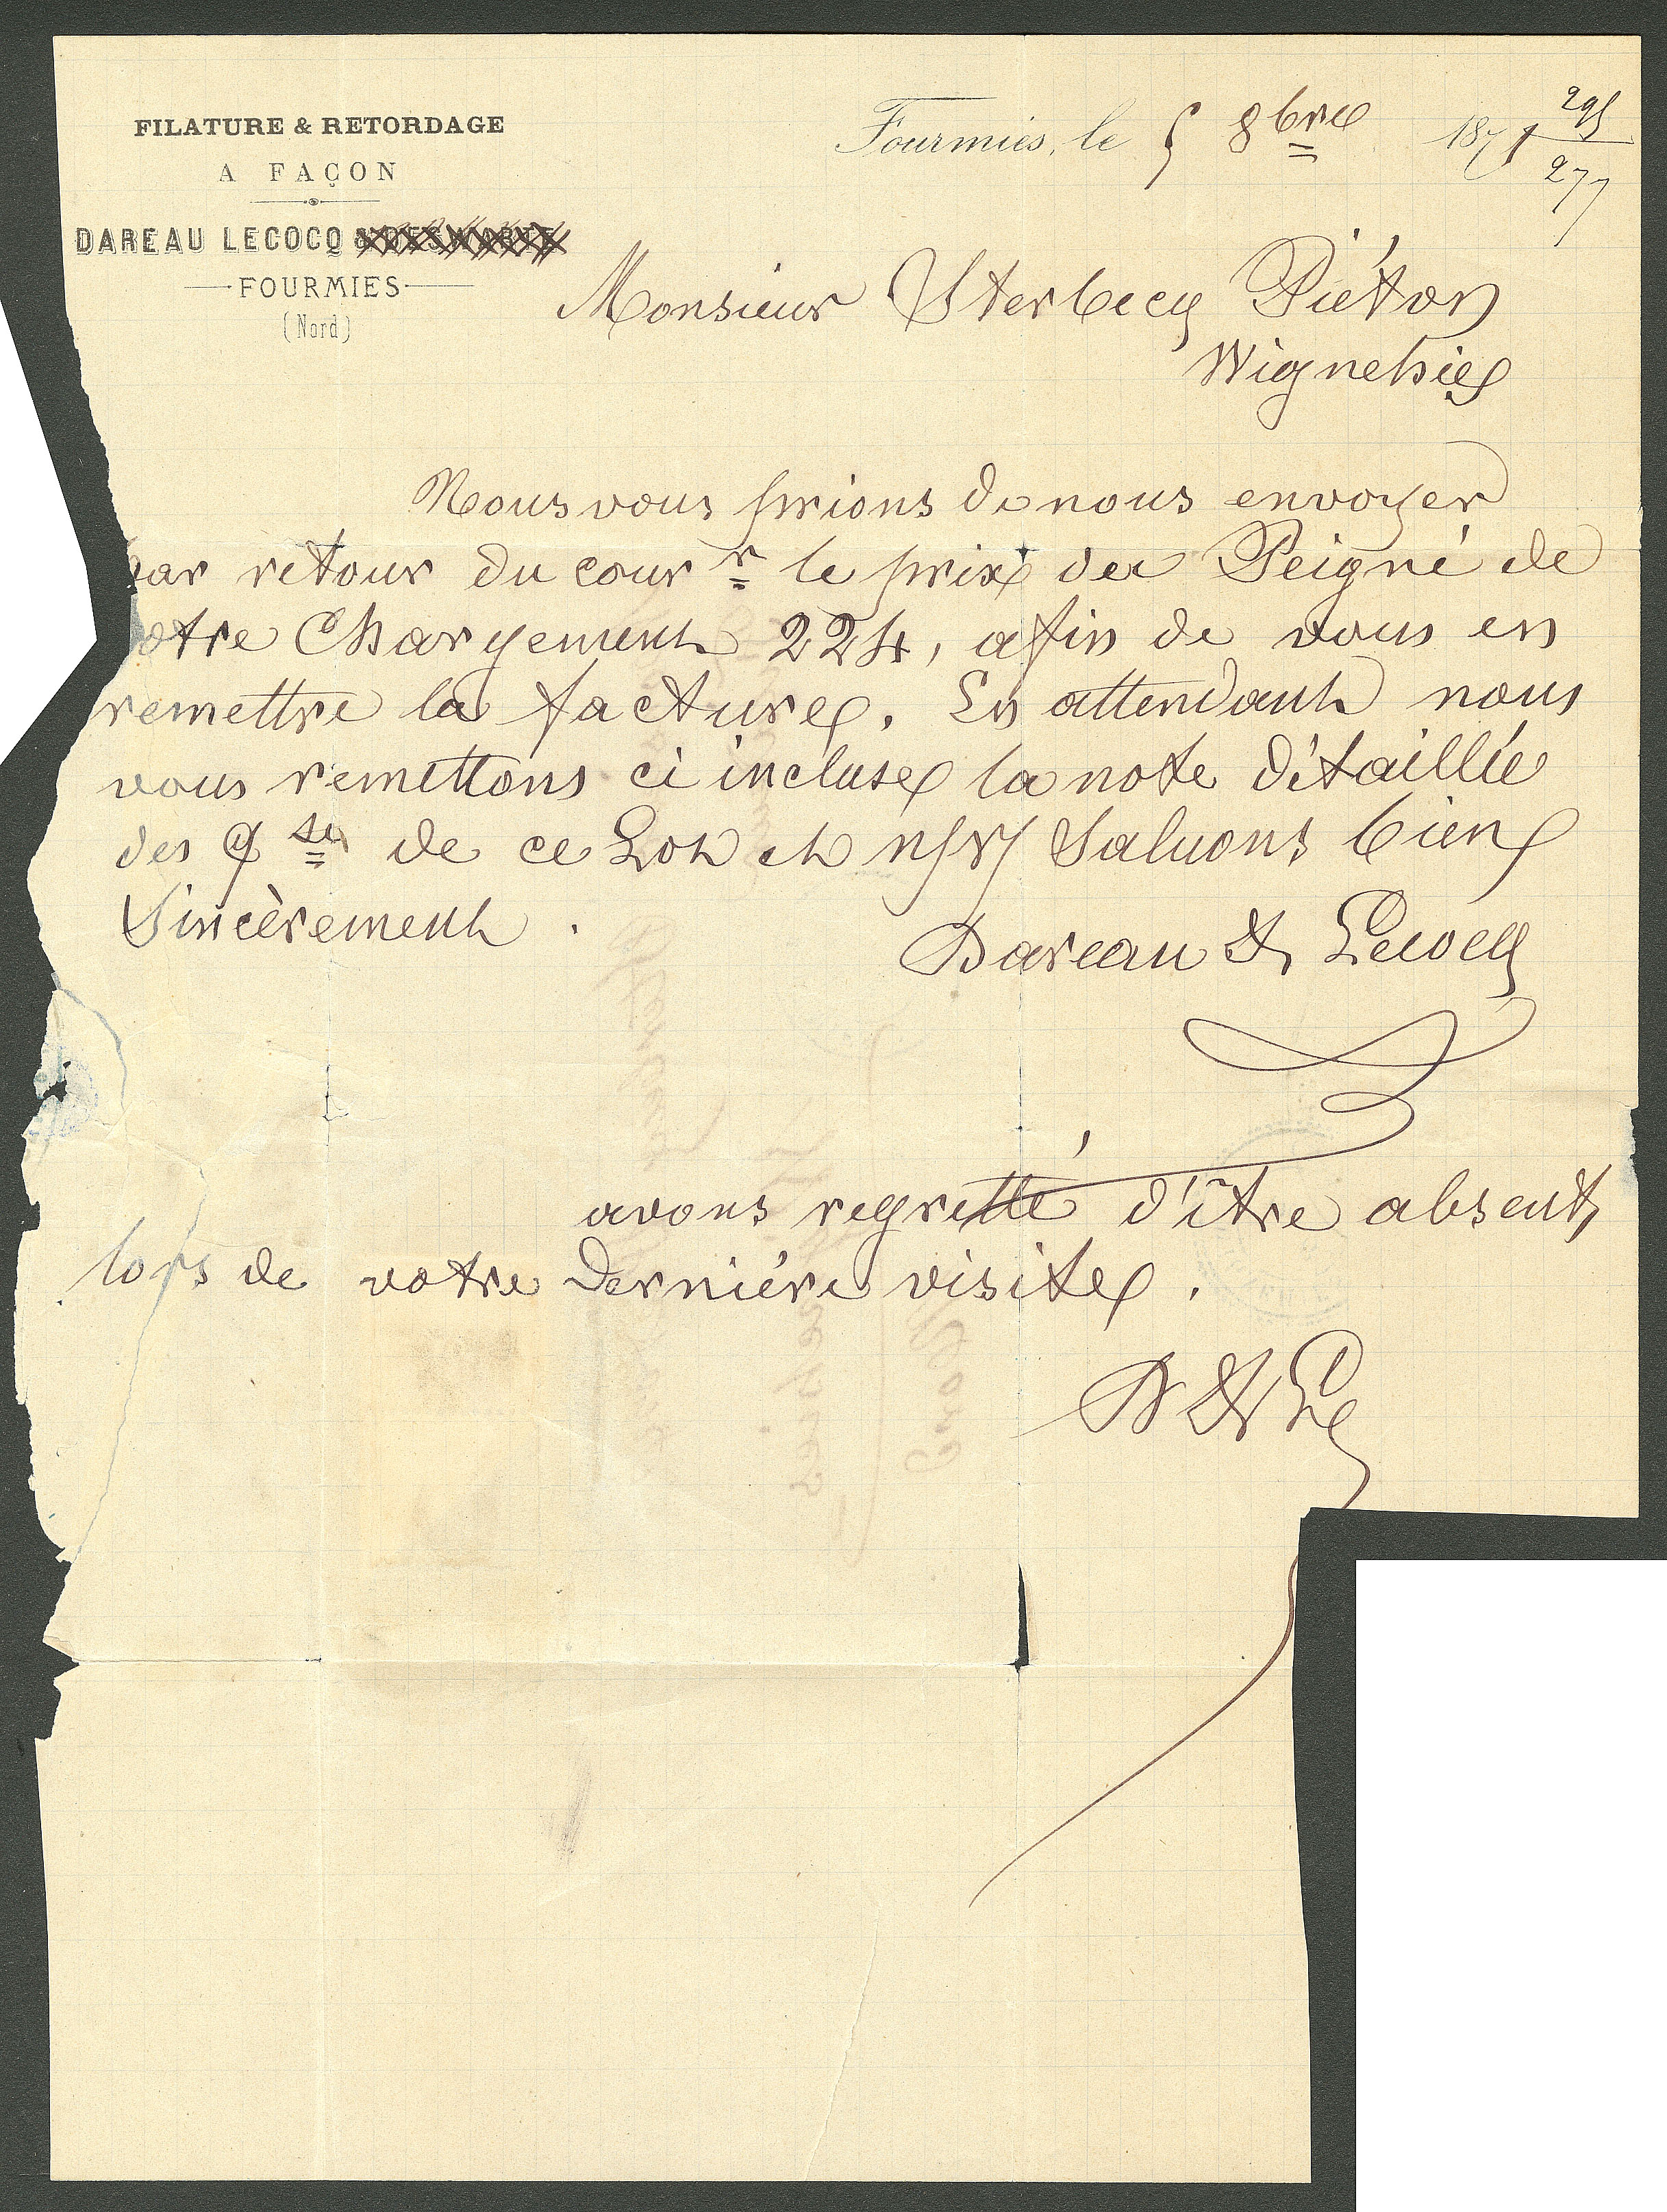 FILATURE & RETORDAGE
A FAÇON
DAREAU LECOCQ
FOURMIES
(Nord)
Fourmies, le 5 8bre 1871
295
277
Monsieur Sterbecq Piéton
Wignehies
Nous vous prions de nous envoyer
par retour du courr le prix du Peigné de
votre Chargement 224, afin de vous en
remettre la facture. En attendant nous
vous remettons ci incluse la note détaillée
des qtés de ce Lot et n/v/ Saluons bien
Sincèrement.
Dareau & Lecocq
avons regretté d'être absents
lors de votre dernière visite.
D & L